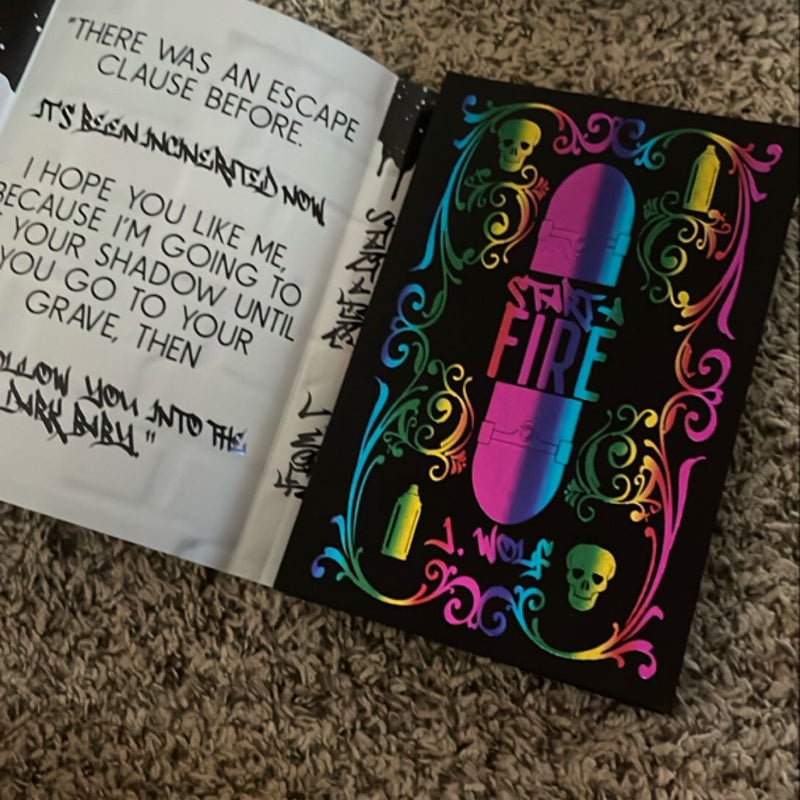 "THERE WAS AN ESCAPE
CLAUSE BEFORE.
IT'S BEEN INCINERATED NOW
I HOPE YOU LIKE ME,
BECAUSE I'M GOING TO
YOUR SHADOW UNTIL
YOU GO TO YOUR
GRAVE, THEN
FOLLOW YOU INTO THE
DARK BABY."
START A FIRE
J. WOLF
START A
FIRE
J. WOLF